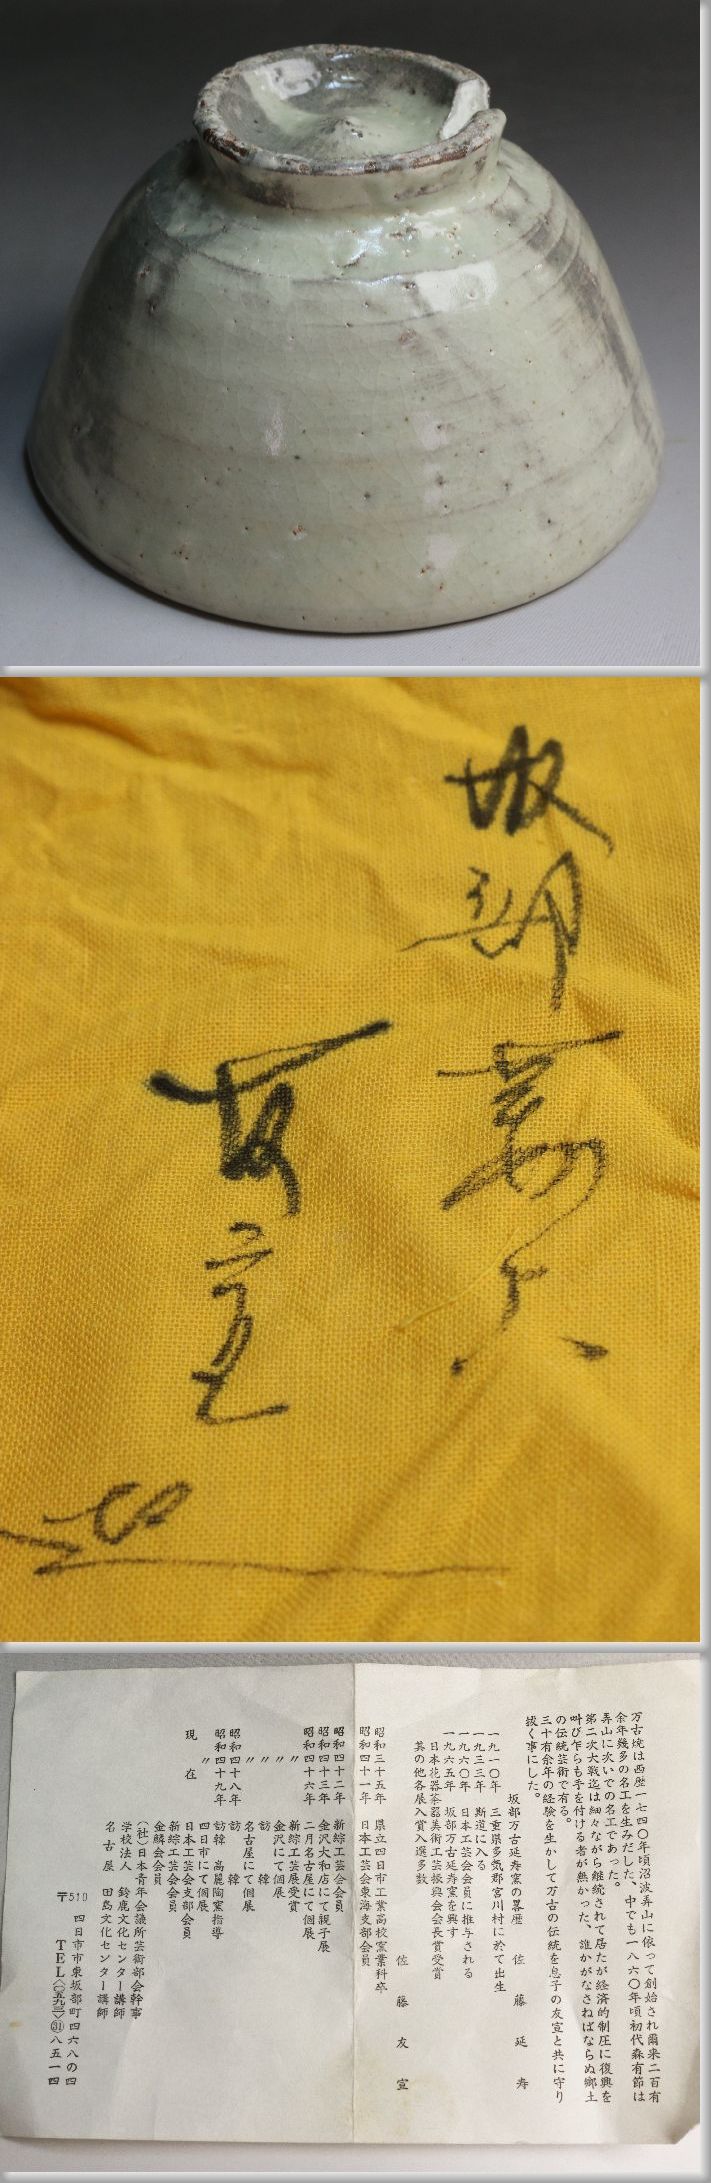 坂部萬古
友宣
万古焼は西歴一七四〇年頃沼波弄山に依って創始され爾来二百有
余年幾多の名工を生みだした、中でも一八六〇年頃初代森有節は
弄山に次いでの名工であった。
第二次大戦迄は細々ながら継続されて居たが経済的制圧に復興を
叫び乍らも手を付ける者が無かった、誰かがなさねばならぬ郷土
の伝統芸術で有る。
三十有余年の経験を生かして万古の伝統を息子の友宣と共に守り
抜く事にした。
坂部万古延寿窯の略歴 佐藤延寿
一九一〇年 三重県多気郡宮川村に於て出生
一九三三年 斯道に入る
一九六〇年 日本工芸会会員に推与される
一九六五年 坂部万古延寿窯を興す
日本花器茶器美術工芸振興会会長賞受賞
其の他各展入賞入選多数
佐藤友宣
昭和三十五年 県立四日市工業高校窯業科卒
昭和四十一年 日本工芸会東海支部会員
昭和四十二年 新綜工芸会会員
昭和四十三年 金沢大和店にて親子展
昭和四十六年 二月名古屋にて個展
〃 新綜工芸展受賞
〃 金沢にて個展
〃 訪韓
〃 名古屋にて個展
昭和四十八年 訪韓
昭和四十九年 訪韓 高麗陶窯指導
〃 四日市にて個展
現在 日本工芸会支部会員
新綜工芸会会員
金鱗会会員
(社)日本青年会議所芸術部会幹事
学校法人 鈴鹿文化センター講師
名古屋 田島文化センター講師
〒510 四日市市東坂部町四六八の四
TEL〈〇五九三〉㉛八五一四